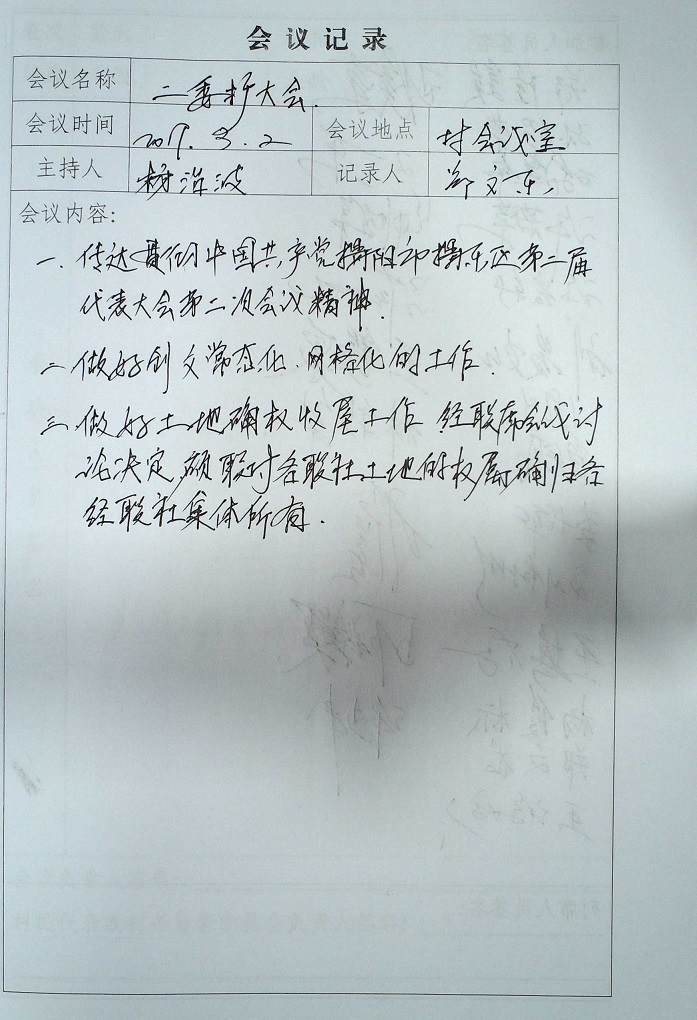 会议记录
会议名称 二委扩大会.
会议时间 2017.3.2 会议地点 村会议室
主持人 杨 波 记录人 郑文东
会议内容:
一. 传达贯彻中国共产党揭阳市揭东区第二届
代表大会第二次会议精神.
二 做好创文常态化、网格化的工作.
三 做好土地确权收尾工作 经联席会议讨
论决定 对各联社土地的权属确归各
经联社集体所有.